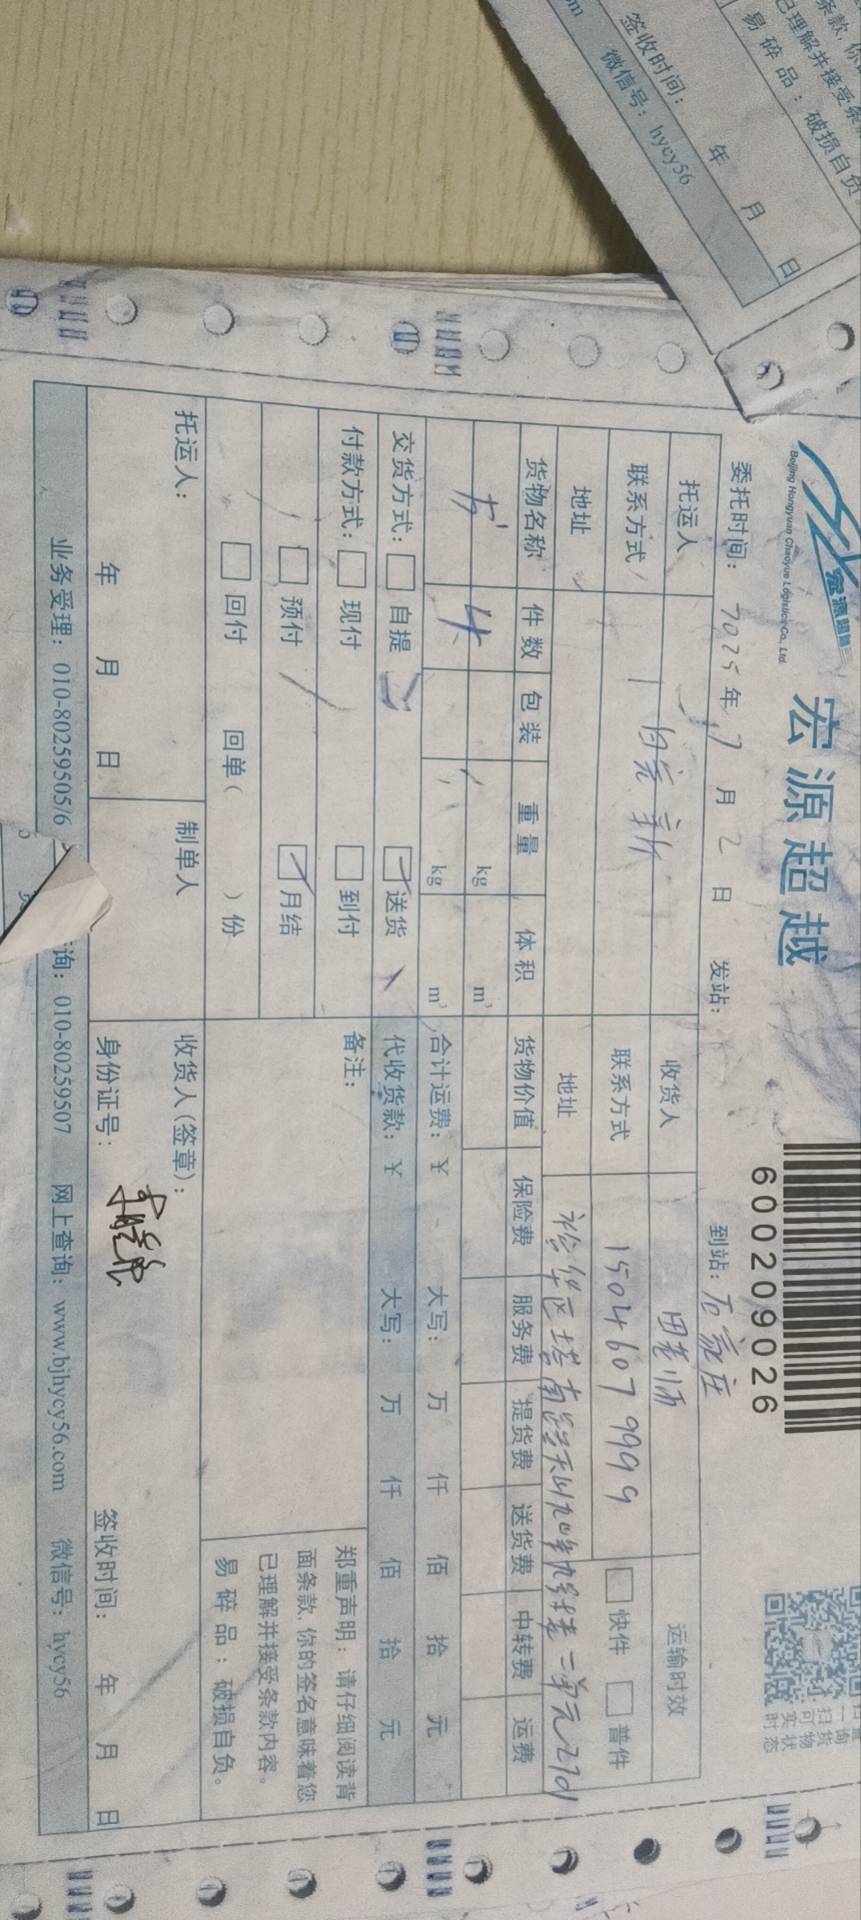 宏源超越
Beijing Hongyuan Chaoyue Logistics Co., Ltd.
宏源超越
600209026
委托时间：2025年7月2日 发站： 到站：石家庄
托运人 收货人 田老师 运输时效
联系方式 联系方式 15046079999 快件 普件
地址 地址 裕华区塔南路
货物名称 件数 包装 重量 体积 货物价值 保险费 服务费 提货费 送货费 中转费 运费
kg m³
4 kg m³ 合计运费：¥ 大写： 万 仟 佰 拾 元
交货方式： 自提 送货 代收货款：¥ 大写： 万 仟 佰 拾 元
付款方式： 现付 到付 备注：
预付 月结
回付 回单（ ）份
郑重声明：请仔细阅读背
面条款，你的签名意味着您
已理解并接受条款内容。
易碎品：破损自负。
托运人： 制单人 收货人（签章）：
年 月 日 身份证号： 签收时间： 年 月 日
业务受理：010-80259505/6 询：010-80259507 网上查询：www.bjhycy56.com 微信号：hycy56
条款，你
已理解并接受条
易碎品：破损自负
签收时间： 年 月 日
微信号：hycy56